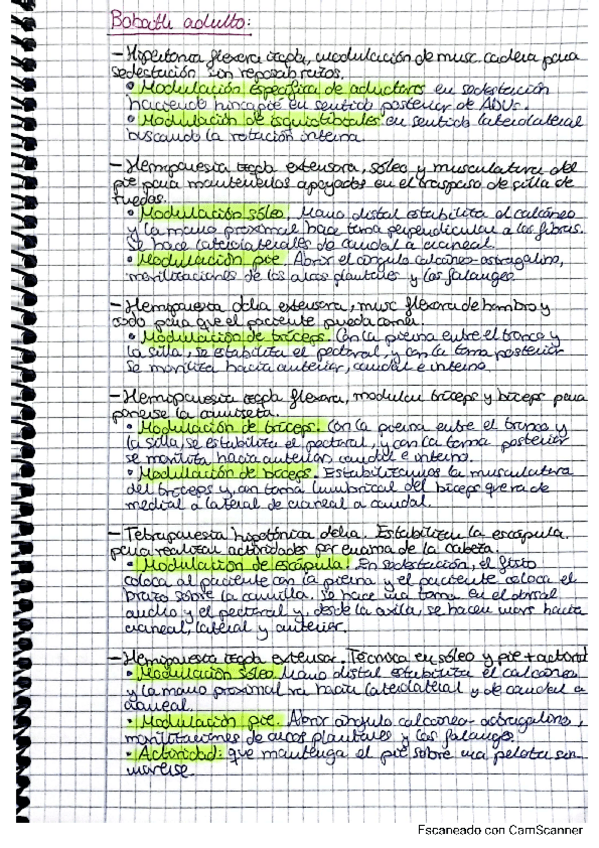 Bobath adulto:
- Hipertonía flexora izqda, modulación de musc. cadera para
sedestación sin reposabrazos.
• Modulación específica de aductores en sedestación
haciendo hincapié en sentido posterior de ADD.
• Modulación de isquiotibiales en sentido laterolateral
buscando la rotación interna.
- Hemiparesia izqda extensora, sóleo y musculatura del
pie para mantenerlos apoyados en el traspaso de silla de
ruedas.
• Modulación sóleo. Mano distal estabiliza el calcáneo
y la mano proximal hace toma perpendicular a las fibras.
Se hace laterolaterales de caudal a craneal.
• Modulación pie. Abrir el ángulo calcáneo-astragalino,
movilizaciones de los arcos plantares y las falanges.
- Hemiparesia dcha extensora, musc flexora de hombro y
codo para que el paciente pueda comer.
• Modulación de tríceps. Con la pierna entre el tronco y
la silla, se estabiliza el pectoral, y con la toma posterior
se moviliza hacia anterior, caudal e interno.
- Hemiparesia izqda flexora, modular tríceps y bíceps para
ponerse la camiseta.
• Modulación de tríceps. Con la pierna entre el tronco y
la silla, se estabiliza el pectoral, y con la toma posterior
se moviliza hacia anterior, caudal e interno.
• Modulación de bíceps. Estabilizamos la musculatura
del tríceps y con toma lumbrical del bíceps que va de
medial a lateral de craneal a caudal.
- Tetraparesia hipotónica dcha. Estabilizar la escápula
para realizar actividades por encima de la cabeza.
• Modulación de escápula: En sedestación, el fisio
coloca al paciente con la pierna y el paciente coloca el
brazo sobre la camilla. Se hace una toma en el dorsal
ancho y el pectoral y, desde la axila, se hacen movs hacia
craneal, lateral y anterior.
- Hemiparesia izqda extensor. Técnica en sóleo y pie + actividad
• Modulación sóleo. Mano distal estabiliza el calcáneo
y la mano proximal va hacia laterolateral y de caudal a
craneal.
• Modulación pie. Abrir ángulo calcáneo-astragalino,
movilizaciones de arcos plantares y las falanges.
• Actividad: que mantenga el pie sobre una pelota sin
moverse.
Escaneado con CamScanner